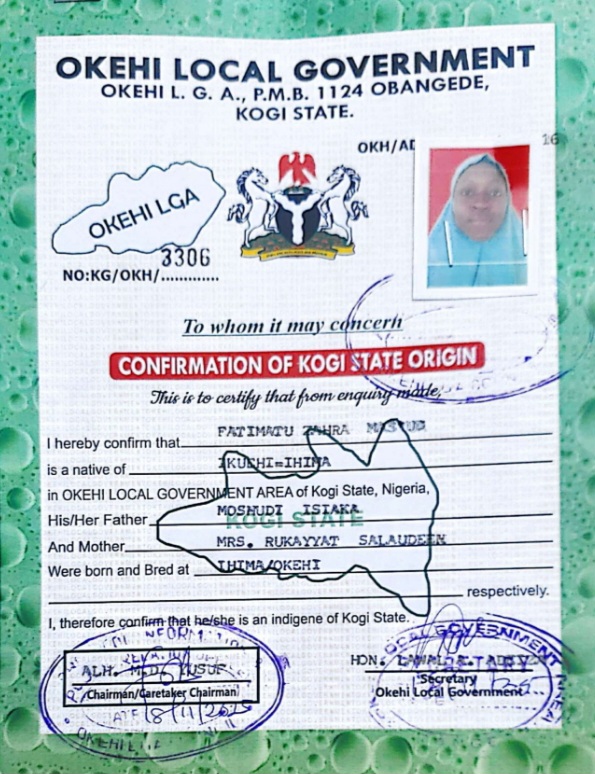 OKEHI LOCAL GOVERNMENT
OKEHI L. G. A., P.M.B. 1124 OBANGEDE,
KOGI STATE.
OKH/AD
16
OKEHI LGA
3306
NO:KG/OKH/.............
To whom it may concern
CONFIRMATION OF KOGI STATE ORIGIN
This is to certify that from enquiry made,
I hereby confirm that FATIMATU ZAHRA MASTUD
is a native of IKUEHI=IHIMA
in OKEHI LOCAL GOVERNMENT AREA of Kogi State, Nigeria,
His/Her Father MOSHUDI ISIAKA
KOGI STATE
And Mother MRS. RUKAYYAT SALAUDEEN
Were born and Bred at IHIMA/OKEHI
respectively.
I, therefore confirm that he/she is an indigene of Kogi State.
ALH. YUSUF
HON. LAWAL
Chairman/Caretaker Chairman
Secretary
Okehi Local Government
18/11/2025